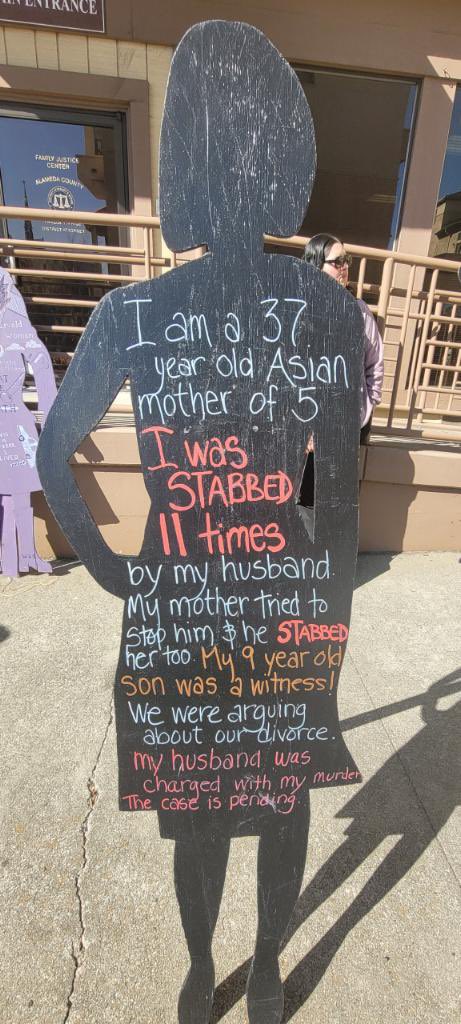 IN ENTRANCE
FAMILY JUSTICE
CENTER
ALAMEDA COUNTY
DISTRICT ATTORNEY
I am a 37
year old Asian
mother of 5
I was
STABBED
11 times
by my husband.
My mother tried to
stop him & he STABBED
her too. My 9 year old
son was a witness!
We were arguing
about our divorce.
my husband was
charged with my murder
The case is pending.